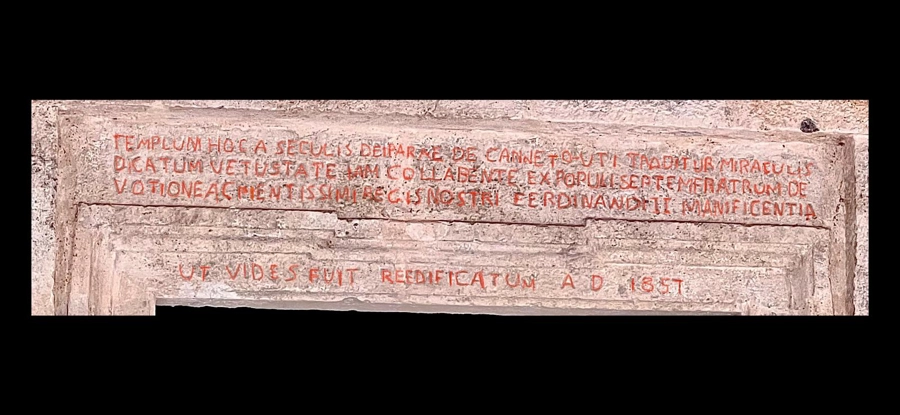 TEMPLUM HOC A SECULIS DEIPARAE DE CANNETO UTI TRADITUR MIRACULIS
DICATUM VETUSTATE IAM COLLABENTE EX POPULI SEPTEMFRATRUM DE
VOTIONE AC MENTISSIMI REGIS NOSTRI FERDINANDI II MUNIFICENTIA
UT VIDES FUIT REEDIFICATUM A D 1857